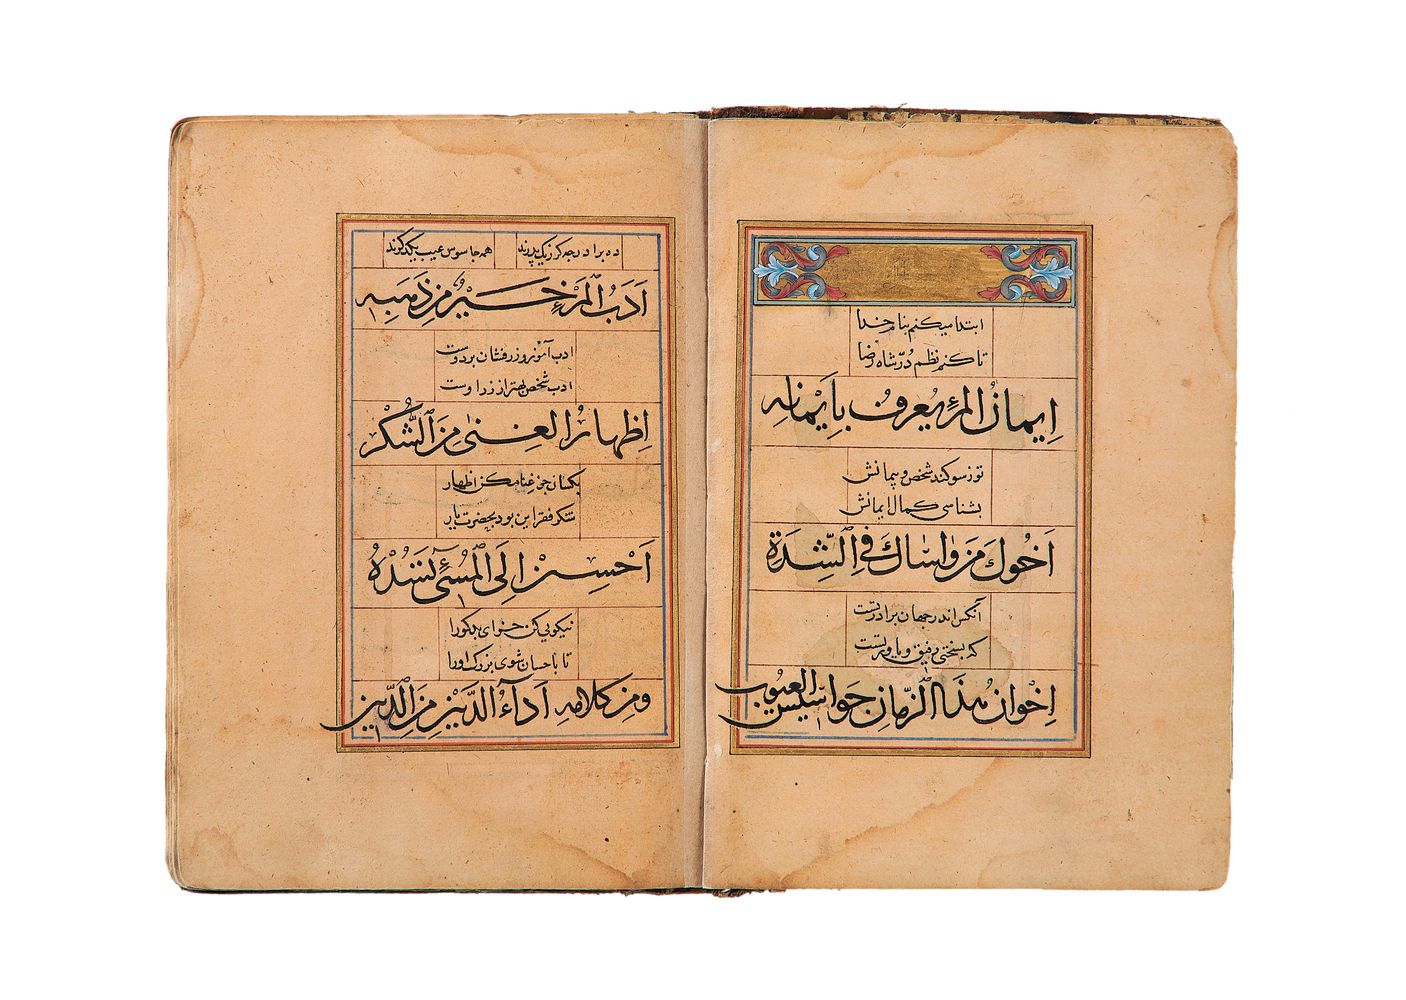 ابتدا میکنم بنام خدا
تا کنم نظم دُرّ شاه رضا
اِیمانُ المَرْءِ یُعرفُ بِاَیْمانِهِ
تو ز سوکند شخص و پیمانش
بشناسی کمال ایمانش
اَخُوكَ مَنْ وٰاسٰاكَ فِی الشِّدَةِ
آنکس اندر جهان برادر تست
که بسختی رفیق و یاور تست
اِخْوانُ هٰذَا الزَّمانِ جَواسٖیسُ العیُوبِ
ده برادر جه کر ز یک پدرند
همه جاسوس عیب یکدکرند
اَدَبُ المَرْءِ خَیْرٌ مِنْ ذَهَبِهِ
ادب آموز و زر فشان بر دوست
ادب شخص بهتر از زر اوست
اِظهارُ الغِنیٰ مِنَ الشُّكْرِ
بکسان جز غنا مکن اظهار
شکر فقر این بود بحضرت یار
اَحْسِنْ اِلَی المُسیٓءِ تَسُدْهُ
نیکویی کن جزای بدکو را
تا باحسان شوی بزرک او را
وَمِنْ کلامِهِ اَدآءُ الدَّیْنِ مِنَ الدّٖینِ